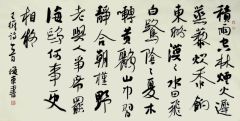 積雨空林煙火遲
蒸藜炊黍餉
東菑漠漠水田飛
白鷺陰陰夏木
囀黃鸝山中習
靜觀朝槿野
老與人爭席罷
海鷗何事更
相疑
王維詩